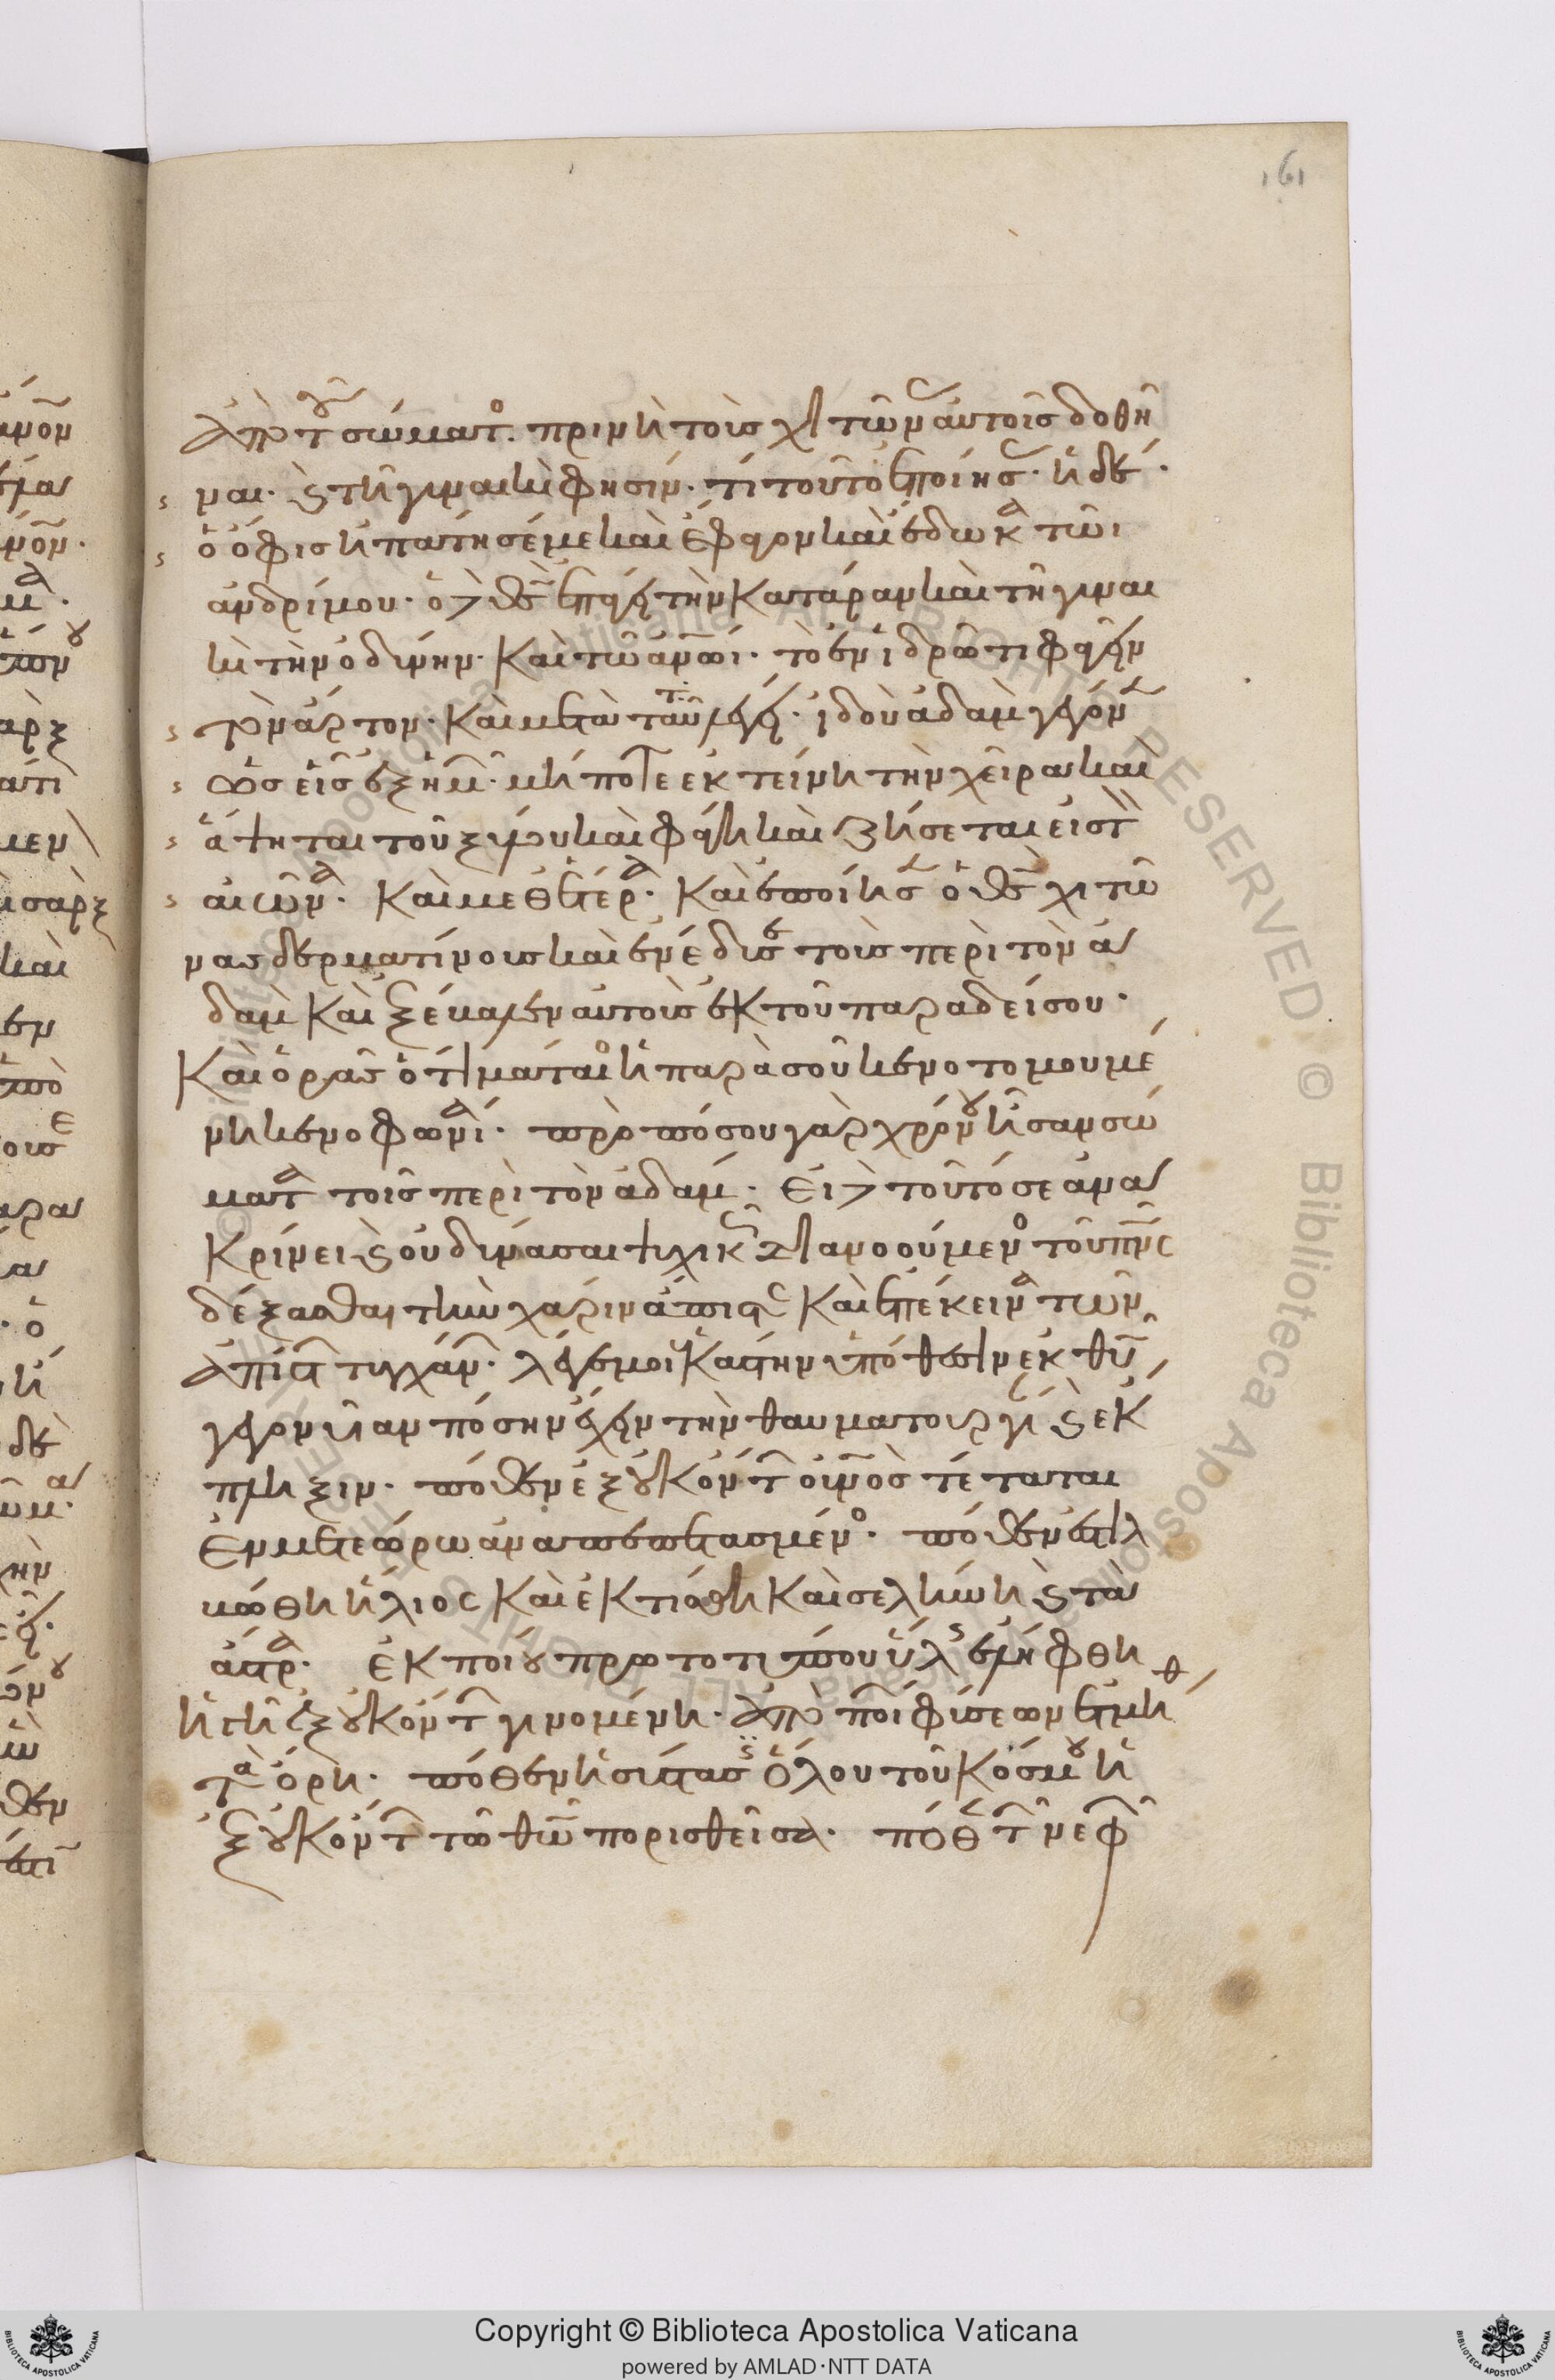 161
ἀπὸ τοῦ σώματος. πρὶν ἢ τοὺς χιτῶνας αὐτοῖς δοθῆ
ναι. καὶ τῇ γυναικὶ φησίν. τί τοῦτο ἐποίησας. ἡ δέ.
ὁ ὄφις ἠπάτησέ με καὶ ἔφαγον καὶ ἔδωκα τῶι
ἀνδρί μου. ὁ δὲ θεὸς ἐπάγει τὴν κατάραν καὶ τῆ γυναι
κὶ τὴν ὀδύνην. καὶ τῶ ἀνδρὶ. τὸ ἐν ἱδρῶτι φαγεῖν
τὸν ἄρτον. καὶ μετὰ ταῦτα λέγει. ἰδοὺ ἀδὰμ γέγονεν
ὡς εἷς ἐξ ἡμῶν. μή ποτε ἐκτείνη τὴν χεῖρα καὶ
ἅψηται τοῦ ξύλου καὶ φάγη καὶ ζήσεται εἰς τὸν
αἰῶνα. καὶ μεθ' ἕτερα. καὶ ἐποίησεν ὁ θεὸς χιτῶ
νας δερματίνους καὶ ἐνέδυσε τοὺς περὶ τὸν ἀ
δὰμ καὶ ἐξέβαλεν αὐτοὺς ἐκ τοῦ παραδείσου.
Καὶ ὁρᾶς ὅτι ματαία ἡ παρὰ σοῦ καινοτομουμέ
νη κενοφωνία. πρὸ πόσου γὰρ χρόνου ἦσαν σώ
ματα τοῖς περὶ τὸν ἀδάμ. Εἰ δὲ τοῦτό σε ἀνα
κρίνει καὶ οὐ δύνασαι ψυχικῶς διανοούμενος τοῦ πνεύματος
δέξασθαι τὴν χάριν ἄπιστε καὶ ἐπέκεινα τῶν
ἀπίστων τυγχάνων. λέγε μοι κατὰ τὴν ὑπόθεσιν ἐκ θεοῦ
γεγονυῖαν πόσην ἔχει τὴν θαυματουργίαν καὶ ἔκ
πληξιν. πόθεν ἐξ οὐκ ὄντων οὐρανὸς τέταται
ἐν μετεώρω ἀναπεπετασμένος. πόθεν ἐστιλ
βώθη ἥλιος καὶ ἐκτίσθη καὶ σελήνη καὶ τὰ
ἄστρα. ἐκ ποίου πρωτοτύπου ὕλης ἐλήφθη
ἡ γῆ ἐξ οὐκ ὄντων γινομένη. ἀπὸ ποίων φύσεων ἐτμήθη
τὰ ὄρη. πόθεν ἡ σύστασις ὅλου τοῦ κόσμου ἡ
ἐξ οὐκ ὄντων τῶ θεῶ πορισθεῖσα. πόθεν τῶν νεφῶν
Copyright © Biblioteca Apostolica Vaticana
powered by AMLAD·NTT DATA